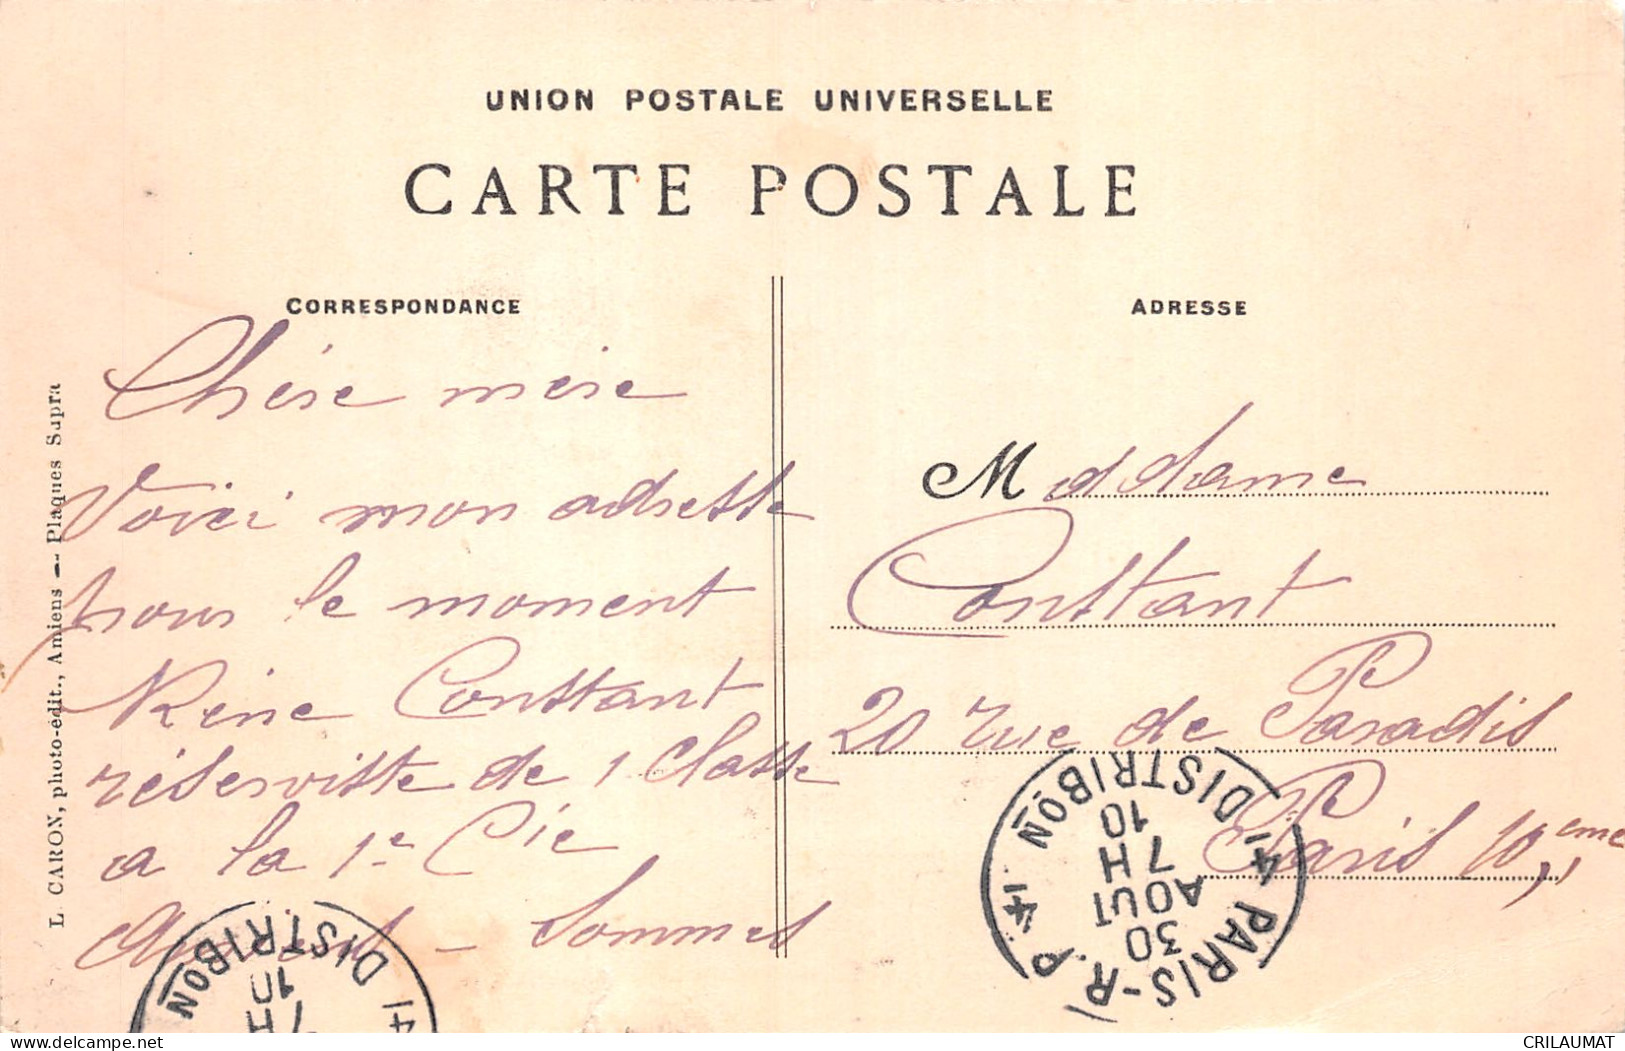 UNION POSTALE UNIVERSELLE
CARTE POSTALE
CORRESPONDANCE
Chère mère
Voici mon adresse
pour le moment
Réné Constant
réserviste de 1 Classe
a la 1e Cie
Amiens - Sommes
ADRESSE
Madame
Constant
20 rue de Paradis
Paris 10,eme
L. CARON, photo-édit., Amiens — Plaques Supra
PARIS-R.P 4 DISTRIBON
30
AOUT
7H
10
14 DISTRIBON
7H
10
delcampe.net
CRILAUMAT